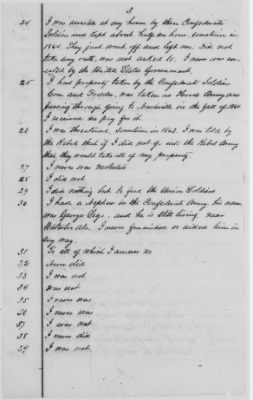 3
24 I was arrested at my home by three Confederate
Soldiers and kept about half an hour, sometime in
1864. They just went off and left me. Did not
take any oath, was not asked to. I never was arr-
ested by the United States Government.
25 I had property taken by the Confederate Soldiers
Corn and Fodder, was taken as Hoods Army was
passing through going to Nashville in the fall of 1864
I received no pay for it.
26 I was threatened, sometime in 1863. I was told by
the Rebels that if I did not go into the Rebel Army
that they would take all of my property.
27 I never was molested
28 I did not.
29 I did nothing but to feed the Union Soldiers
30 I had a Nephew in the Confederate Army his name
was George and he is still living near
Waterloo Ala. I never furnished or aided him in
any way.
31 To all of which I answer no
32 Never did
33 I was not
34 was not
35 I never was
36 I never was
37 I was not
38 I never did
39 I was not.